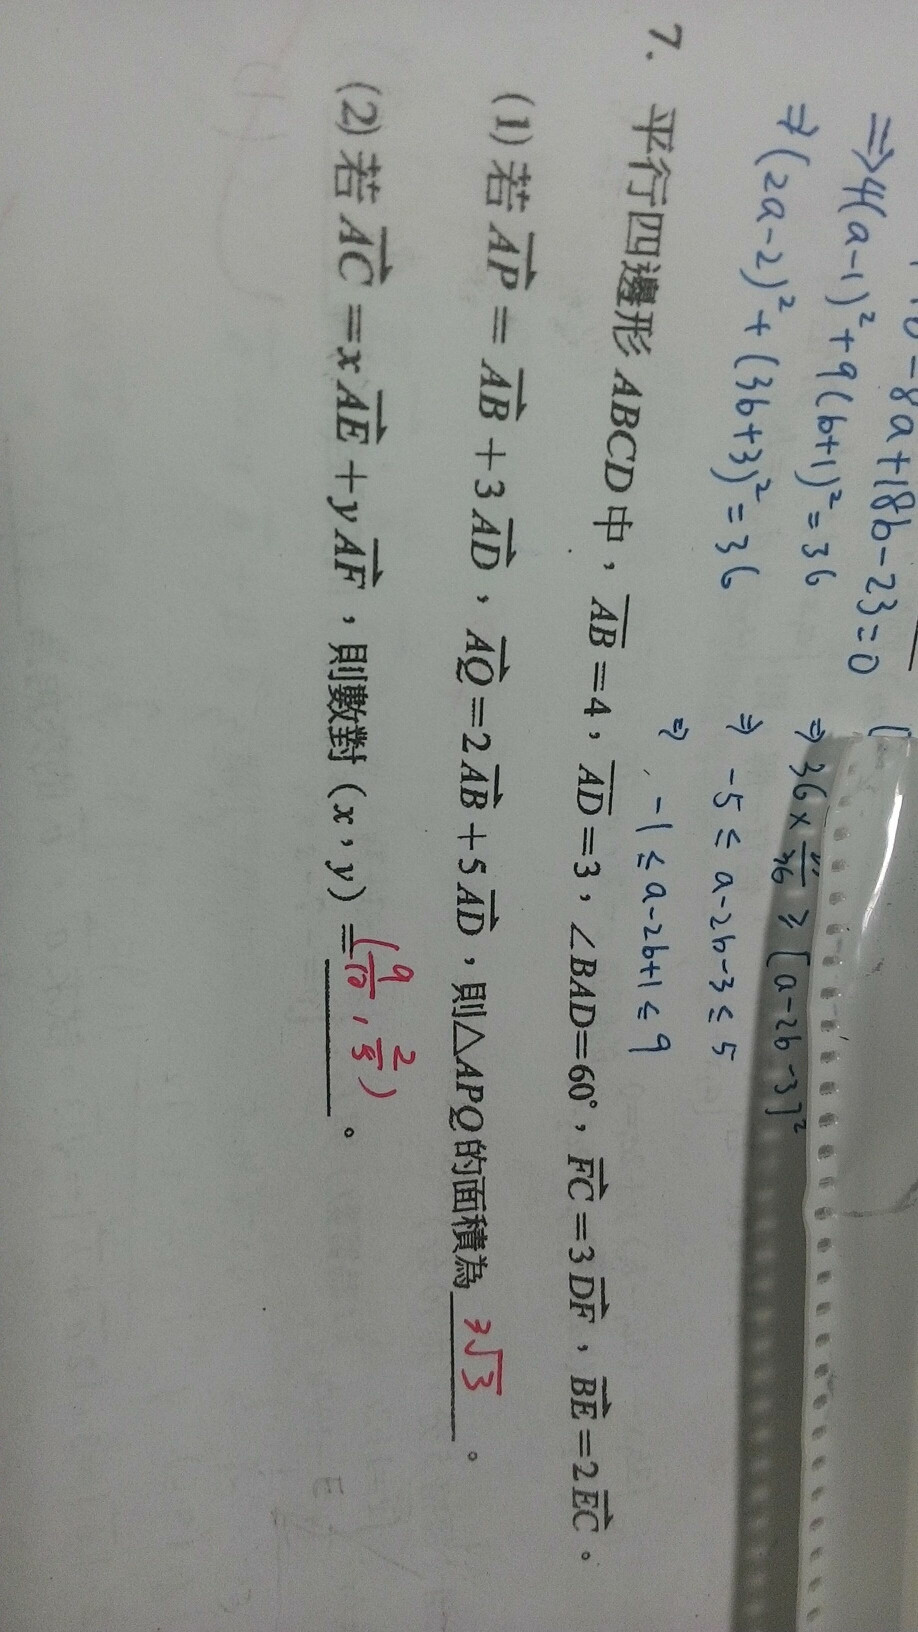 -8a+18b-23=0
⇒4(a-1)²+9(b+1)²=36
⇒(2a-2)²+(3b+3)²=36
⇒ 36× ≥ [a-2b-3]²
⇒ -5≤a-2b-3≤5
⇒ -1≤a-2b+1≤9
7. 平行四邊形 ABCD 中，\overline{AB}=4，\overline{AD}=3，∠BAD=60°，\overrightarrow{FC}=3\overrightarrow{DF}，\overrightarrow{BE}=2\overrightarrow{EC}。
(1) 若 \overrightarrow{AP}=\overrightarrow{AB}+3\overrightarrow{AD}，\overrightarrow{AQ}=2\overrightarrow{AB}+5\overrightarrow{AD}，則△APQ的面積為 3√3 。
(2) 若 \overrightarrow{AC}=x\overrightarrow{AE}+y\overrightarrow{AF}，則數對 (x，y)=(9/10, 2/5)。
E